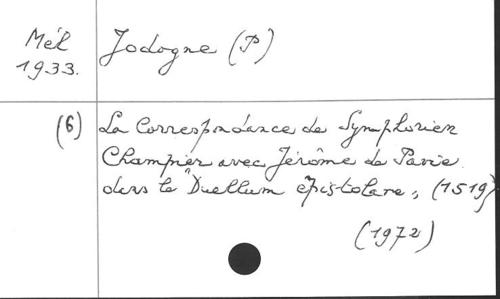 Mél Jodogne (P)
1933.
(6) La Correspondance de Symphorien
Champier avec Jérôme de Pavie
dans le "Duellum epistolare", (1519)
(1972)